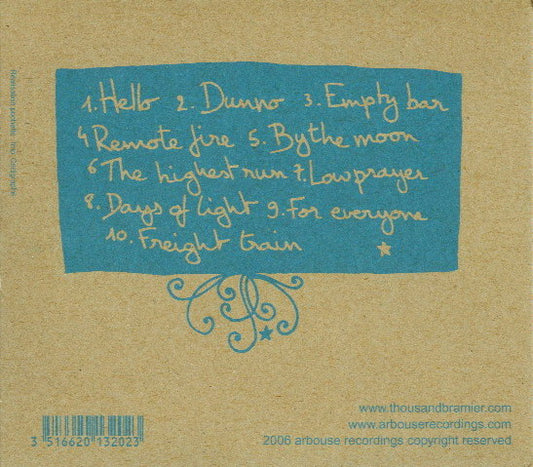 1. Hello 2. Dunno 3. Empty bar
4 Remote fire 5. By the moon
6 The highest run 7. Low prayer
8. Days of light 9. For everyone
10. Freight train
www.thousandbramier.com
www.arbouserecordings.com
3 516620 132023
2006 arbouse recordings copyright reserved